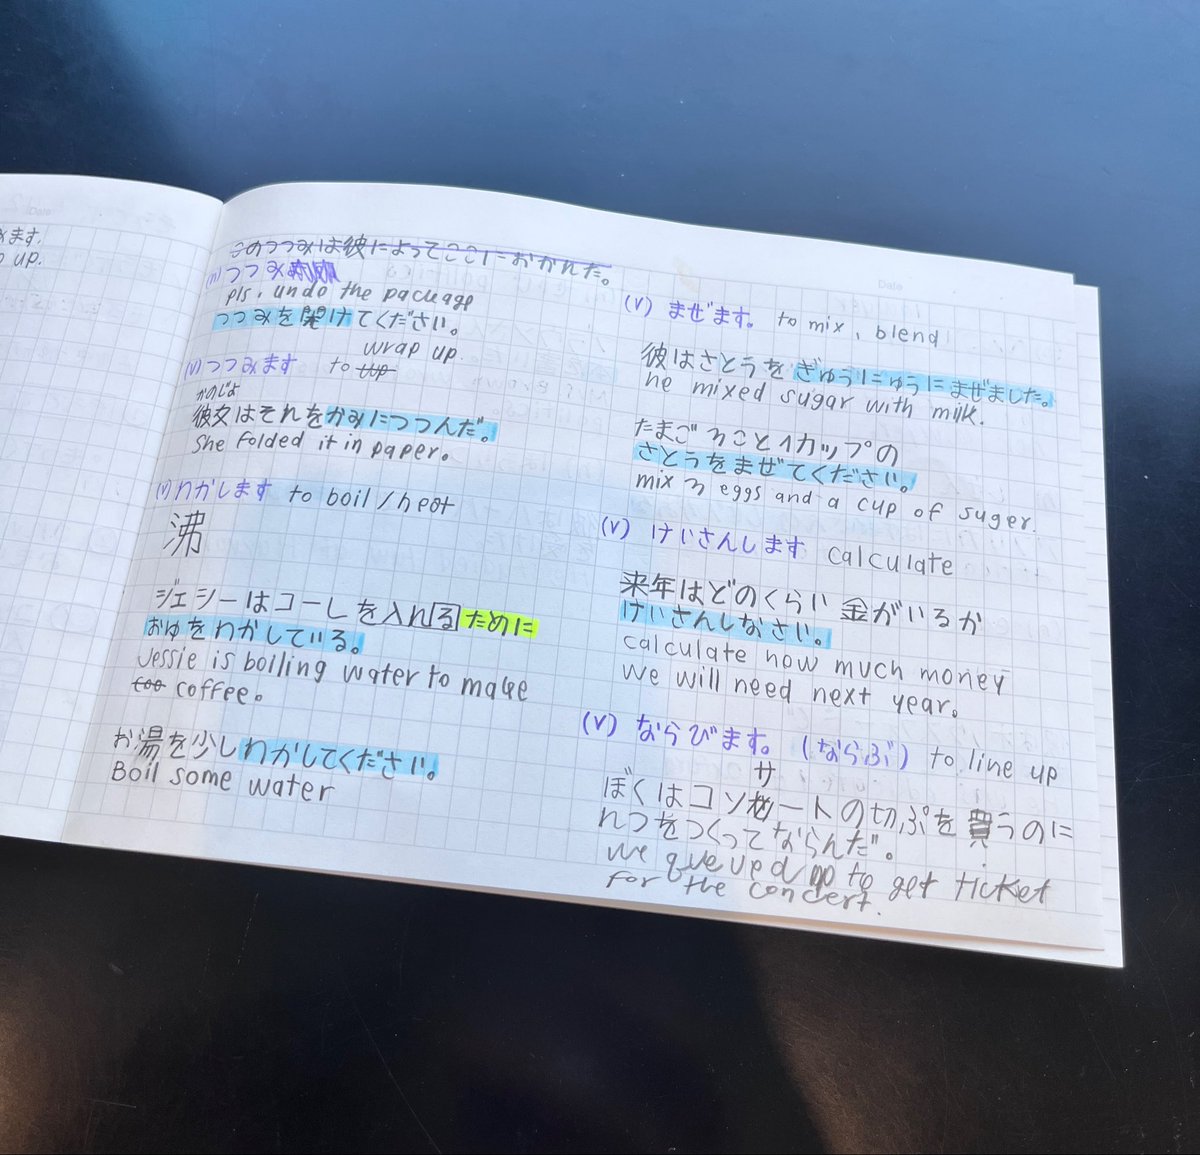 Date
みます.
up.
このつつみは彼によってここにおかれた。
(n) つつみ
pls, undo the package
つつみを開けてください。
wrap up
(v) つつみます to tup
かのじょ
彼女はそれをかみにつつんだ。
She folded it in paper.
(v) わかします to boil / heat
沸
ジェシーはコーしを入れるために
おゆをわかしている。
Jessie is boiling water to make
too coffee.
お湯を少しわかしてください。
Boil some water
Date
(v) まぜます。 to mix, blend
彼はさとうをぎゅうにゅうにまぜました。
he mixed sugar with milk.
たまご3こと1カップの
さとうをまぜてください。
mix 3 eggs and a cup of suger.
(v) けいさんします calculate
来年はどのくらい金がいるか
けいさんしなさい。
calculate how much money
we will need next year.
(v) ならびます。(ならぶ) to line up
サ
ぼくはコンートの切ぷを買うのに
れつをつくってならんだ。
we queued up to get ticket
for the concert.